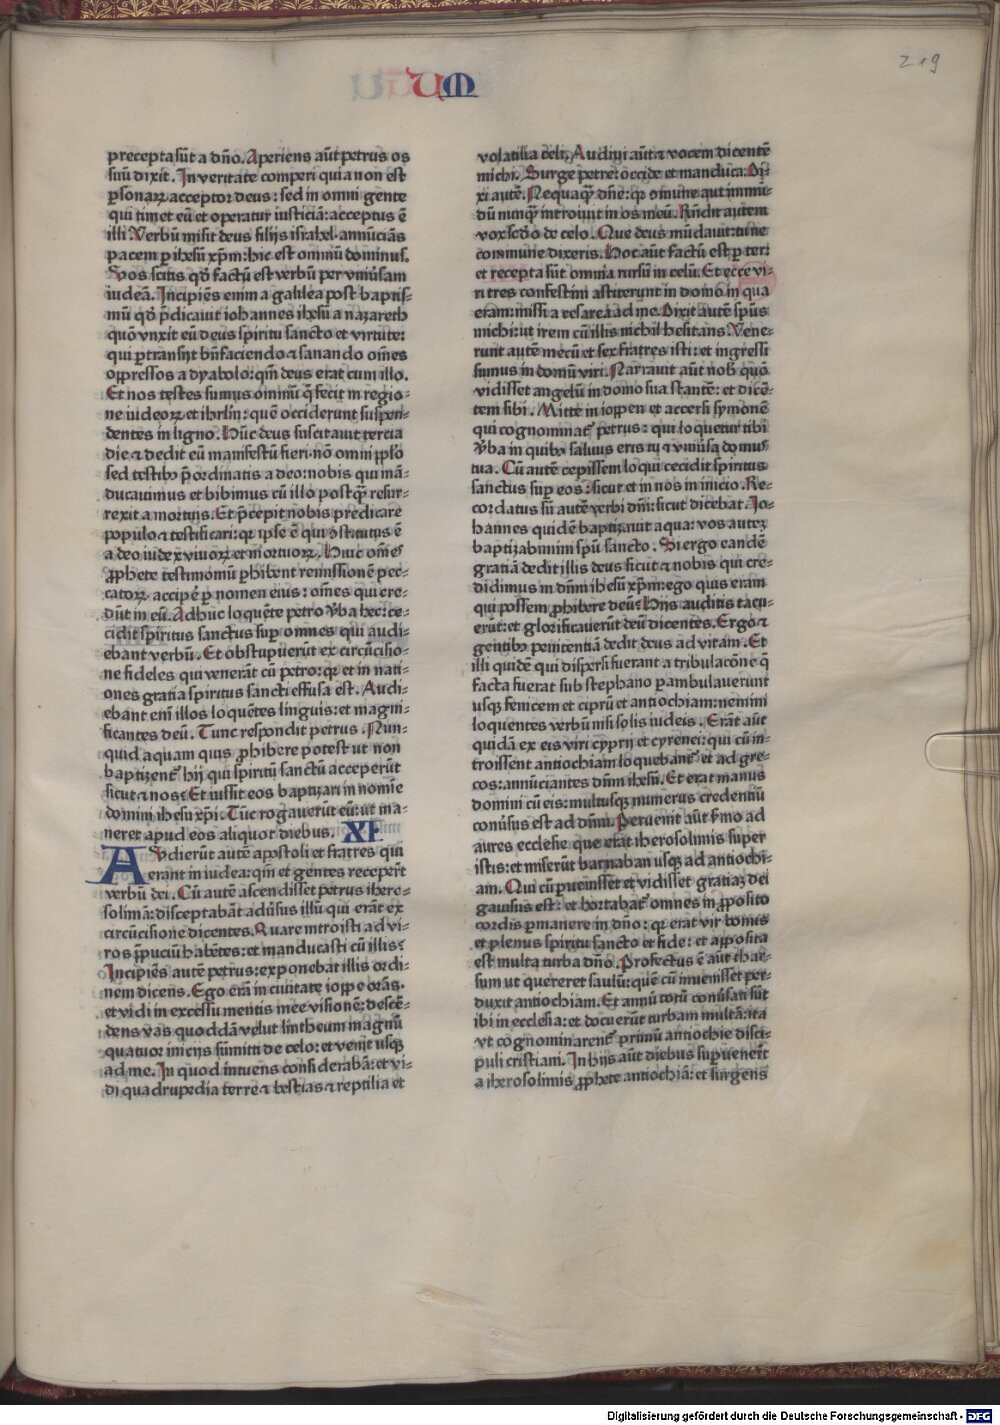 UM
219
precepta sūt a dño. Aperiens aūt petrus os
suū dixit. In veritate comperi quia non est
ꝑsonaꝝ acceptor deus: sed in omni gente
qui timet eū et operatur iusticiā: acceptus ē
illi. Verbū misit deus filijs israhel. annūciās
pacem ꝑ ihesū xp̄m: hic est omniū dominus.
Vos scitis qđ factū est verbū per vniūsam
iudeā. Incipiēs enim a galilea post baptis-
mū qđ p̄dicauit iohannes ihesū a nazareth
quō vnxit eū deus spiritu sancto et virtute:
qui ꝑtransijt bn̄faciendo ⁊ sanando om̄es
oppressos a dyabolo: qm̄ deus erat cum illo.
Et nos testes sumus omniū q̄ fecit in regio-
ne iudeoꝝ et ihrl̄m: quē occiderunt suspen-
dentes in ligno. Hūc deus suscitauit tercia
die ⁊ dedit eū manifestū fieri. nō omni ppl̄o
sed testibꝰ p̄ordinatis a deo: nobis qui mā-
ducauimus et bibimus cū illo postq̄ resur-
rexit a mortuis. Et p̄cepit nobis predicare
populo ⁊ testificari: qꝛ ipse ē qui ɔstitutus ē
a deo iudex viuoꝝ et mortuoꝝ. Huic om̄es
ꝓphete testimoniū ꝑhibent remissionē pec-
catoꝝ accipē ꝑ nomen eius: om̄es qui cre-
dūt in eū. Adhuc loquēte petro v̄ba hec: ce-
cidit spiritus sanctus suꝑ omnes qui audi-
ebant verbū. Et obstupuerūt ex circūcisio-
ne fideles qui venerāt cū petro: qꝛ et in nati-
ones gratia spiritus sancti effusa est. Audi-
ebant em̄ illos loquētes linguis: et magni-
ficantes deū. Tunc respondit petrus. Nun-
quid aquam quis ꝓhibere potest ut non
baptizent᷑ hij qui spiritū sanctū acceperūt
sicut ⁊ nos? Et iussit eos baptizari in nomīe
domini ihesu xp̄i. Tūc rogauerūt eū: ut ma-
neret apud eos aliquot diebus. XI
Avdierūt autē apostoli et fratres qui
erant in iudea: qm̄ et gentes recepert̄
verbū dei. Cū autē ascendisset petrus ihero-
solimā: disceptabāt adūsus illū qui erāt ex
circūcisione dicentes. Quare introisti ad vi-
ros p̄puciū habētes: et manducasti cū illis?
Incipiēs autē petrus: exponebat illis ordi-
nem dicens. Ego erā in ciuitate ioppe orās.
et vidi in excessu mentis mee visionē: descē-
dens vas quoddā velut lintheum magnū
quatuor inicijs sūmitti de celo: et venit usqꝫ
ad me. In quod intuens considerabā: et vi-
di quadrupedia terre ⁊ bestias ⁊ reptilia et
volatilia celi. Audiui aūt ⁊ vocem dicentē
michi. Surge petre: occide et manduca. Di-
xi autē. Nequaq̄ dn̄e: qꝛ omune aut inmū-
dū nunq̄ introiuit in os meū. Rn̄dit autem
vox scd̄o de celo. Que deus mūdauit: tu ne
commune dixeris. Hoc aūt factū est ꝑ ter:
et recepta sūt omnia rursū in celū. Et ecce vi-
ri tres confestim astiterunt in domo in qua
eram: missi a cesarea ad me. Dixit autē sp̄us
michi: ut irem cū illis nichil hesitans. Vene-
runt autē mecū et sex fratres isti: et ingressi
sumus in domū viri. Narrauit aūt nob̄ quō
vidisset angelū in domo sua stantē: et dicē-
tem sibi. Mitte in ioppen et accersi symonē
qui cognominat᷑ petrus: qui loquetur tibi
v̄ba in quibꝰ saluus eris tu ⁊ vniūsa domus
tua. Cū autē cepissem loqui cecidit spiritus
sanctus suꝑ eos: sicut et in nos in inicio. Re-
cordatus sū autē verbi dn̄i: sicut dicebat. Jo-
hannes quidē baptizauit aqua: vos autez
baptizabimini sp̄u sancto. Si ergo eandē
gratiā dedit illis deus sicut ⁊ nobis qui cre-
didimus in dn̄m ihesū xp̄m: ego quis eram
qui possem ꝓhibere deū? Hijs auditis tacu-
erūt: et glorificauerūt deū dicentes. Ergo ⁊
gentibꝰ penitentiā dedit deus ad vitam. Et
illi quidē qui dispersi fuerant a tribulacōne q̄
facta fuerat sub stephano ꝑambulauerunt
usqꝫ fenicem et ciprū et antiochiam: nemini
loquentes verbū nisi solis iudeis. Erāt aūt
quidā ex eis viri cyprij et cyrenei: qui cū in-
troissent antiochiam loquebant᷑ et ad gre-
cos: annūciantes dn̄m ihesū. Et erat manus
domini cū eis: multusqꝫ numerus credentiū
conūsus est ad dn̄m. Peruenit aūt s̄mo ad
aures ecclesie que erat iherosolimis super
istis: et miserūt barnaban usqꝫ ad antiochi-
am. Qui cū ꝑuenisset et vidisset gratiaꝫ dei
gauisus est: et hortabat᷑ omnes in ꝓposito
cordis ꝑmanere in dño: qꝛ erat vir bonus
et plenus spiritu sancto et fide: et apposita
est multa turba dño. Profectus ē aūt thar-
sum ut quereret saulū: quē cū inuenisset per-
duxit antiochiam. Et annū totū conūsati sūt
ibi in ecclesia: et docuerūt turbam multā: ita
vt cognominarent᷑ primū antiochie disci-
puli cristiani. In hijs aūt diebus suꝑuenert̄
a iherosolimis ꝓphete antiochiā: et surgens
Digitalisierung gefördert durch die Deutsche Forschungsgemeinschaft - DFG